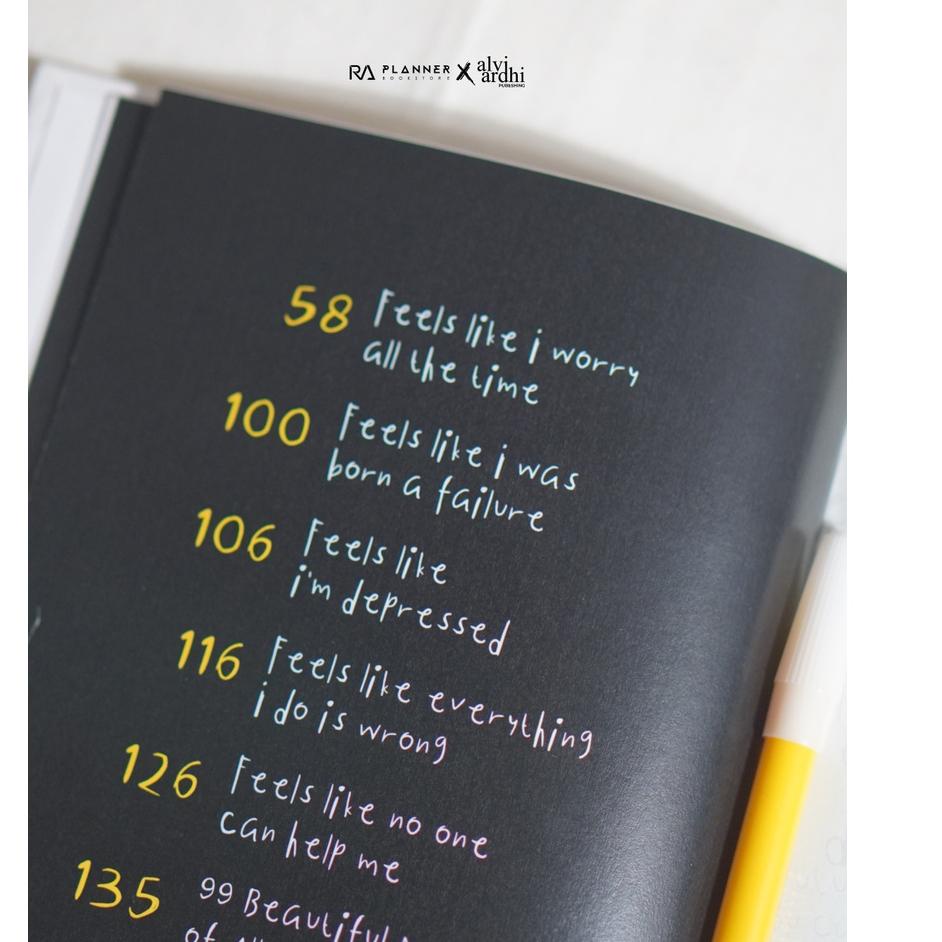 RA PLANNER X alvi
BOOKSTORE ardhi
PUBLISHING
58 Feels like i worry
all the time
100 Feels like i was
born a failure
106 Feels like
i'm depressed
116 Feels like everything
i do is wrong
126 Feels like no one
can help me
135 99 Beautiful
of